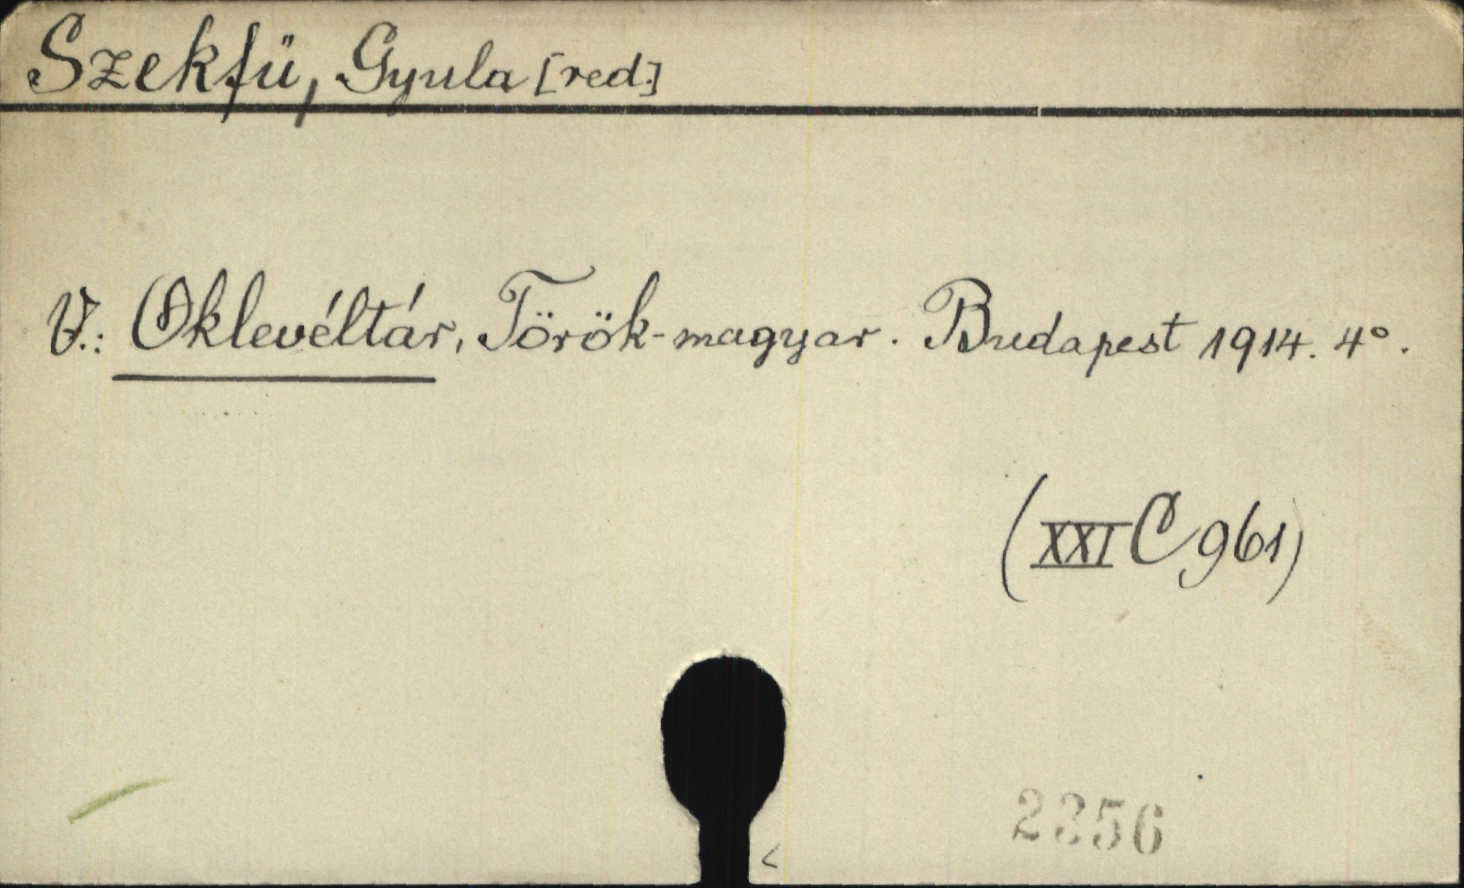 Szekfü, Gyula [red.]
V.: Oklevéltár, Török-magyar. Budapest 1914. 4°.
(XXI C 961)
2356